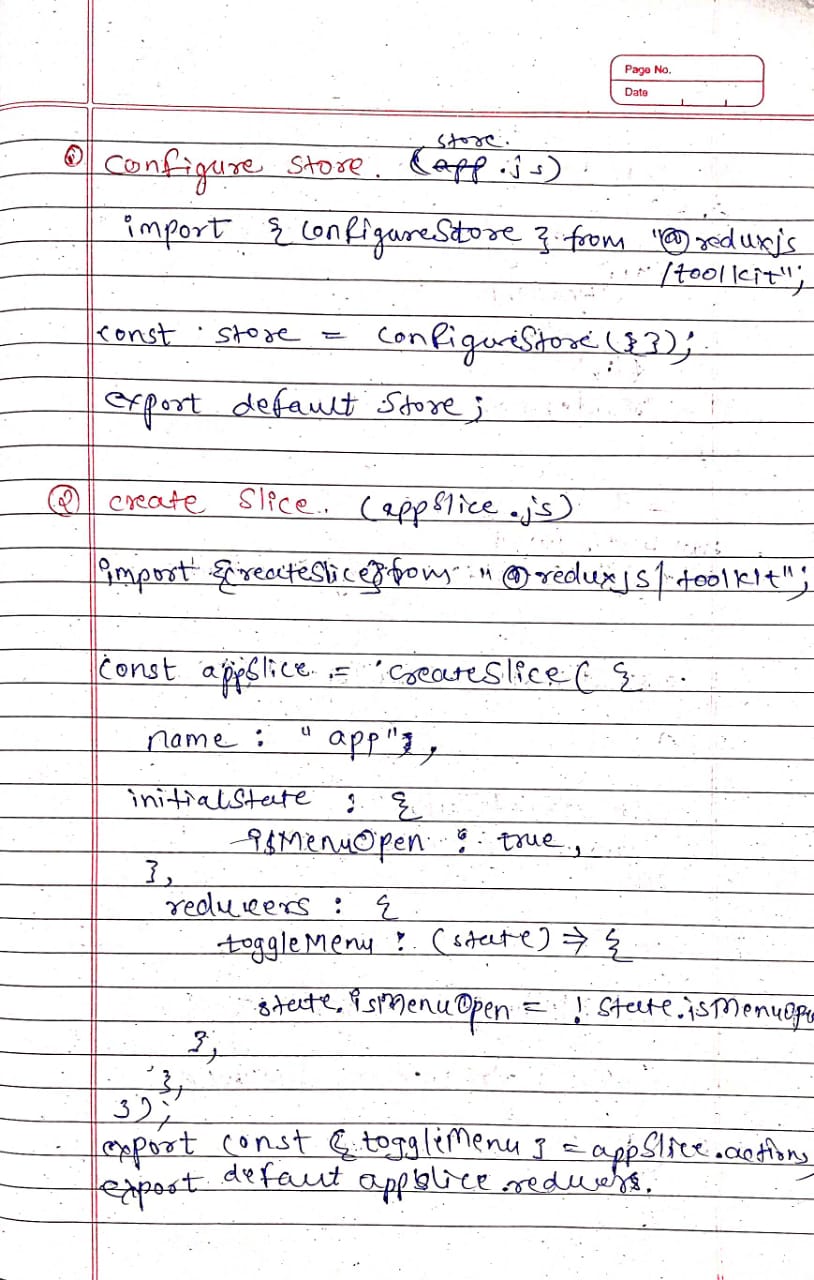 Page No.
Date
store.
① Configure Store. (app.js)
import { configureStore } from "@reduxjs
/toolkit";
const store = configureStore({});
export default store;
② create Slice. (appSlice.js)
import {createSlice} from "@reduxjs/toolkit";
const appSlice = createSlice( {
name : "app",
initialState : {
isMenuOpen : true,
},
reducers : {
toggleMenu : (state) => {
state.isMenuOpen = ! state.isMenuOpe
},
},
});
export const { toggleMenu } = appSlice.actions
export defaut appSlice.reducers.